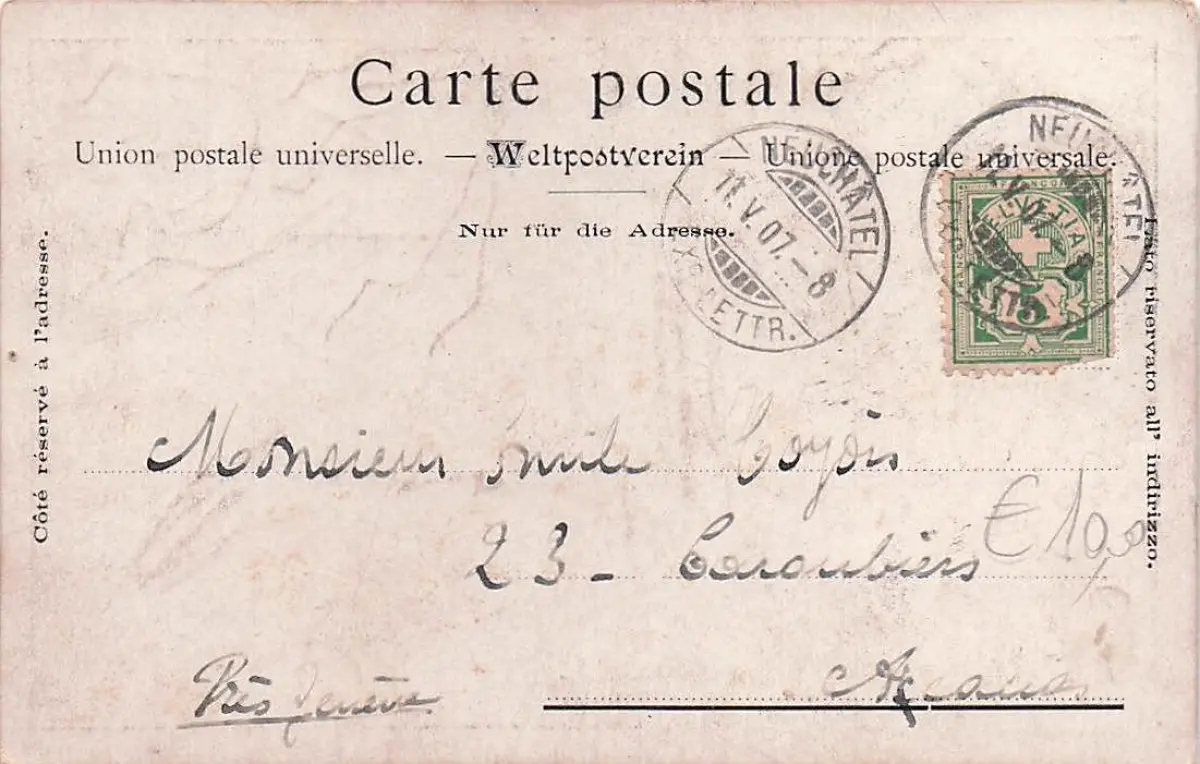 Carte postale
Union postale universelle. — Weltpostverein — Unione postale universale.
Nur für die Adresse.
Côté réservé à l'adresse.
Lato riservato all' indirizzo.
NEUCHÂTEL
11.V.07.-8
EX. LETTR.
FRANCO
HELVETIA
5
Monsieur Emile
23 - Caroubiers
€ 10,0
Acacias
Près Genève